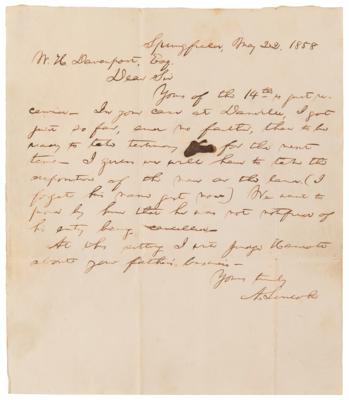 Springfield, May 22, 1858
W. H. Davenport, Esq.
Dear Sir
Yours of the 14th is just re-
ceived — In your case at Danville, I got
just so far, and no farther, than to be
ready to take testimony for the next
term — I guess we will have to take the
deposition of the man on the land. (I
forget his name just now) We want to
prove by him that he was not notified of
his entry being cancelled —
At this sitting I write Judge
about your father's business —
Yours truly
A. Lincoln